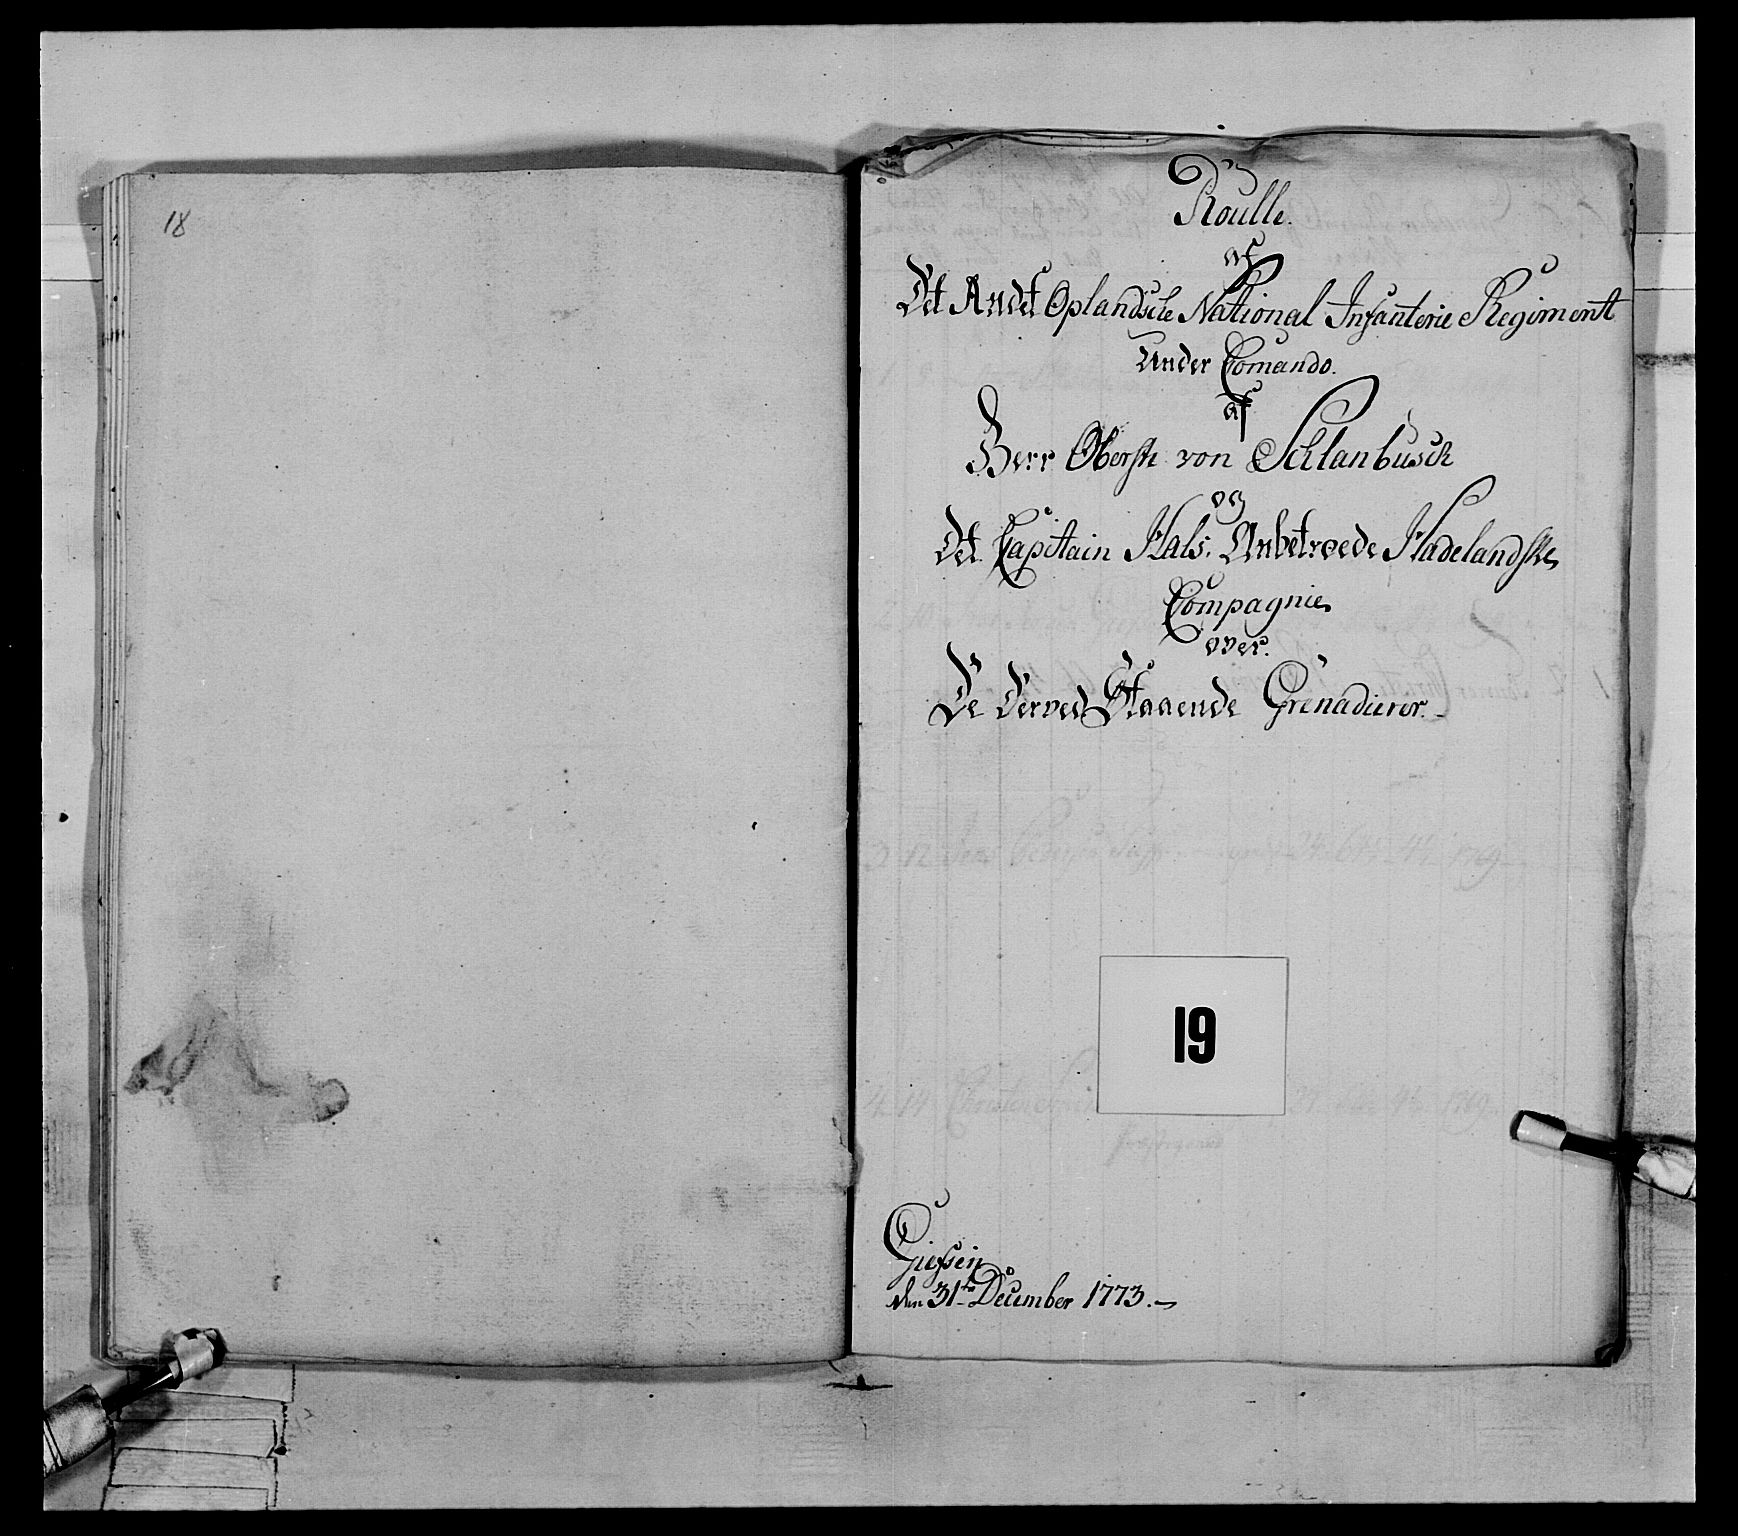 18
Roulle.
af
Det Andet Oplandsche National Infanterie Regiment
Under Comando.
af
Herr Oberste von Schlanbusch
og
Det Capitain Hals. Anbetroede Hadelandske
Compagnie
over.
De Derved Staaende Grenadierer.
19
Giessen
den 31te December 1773.